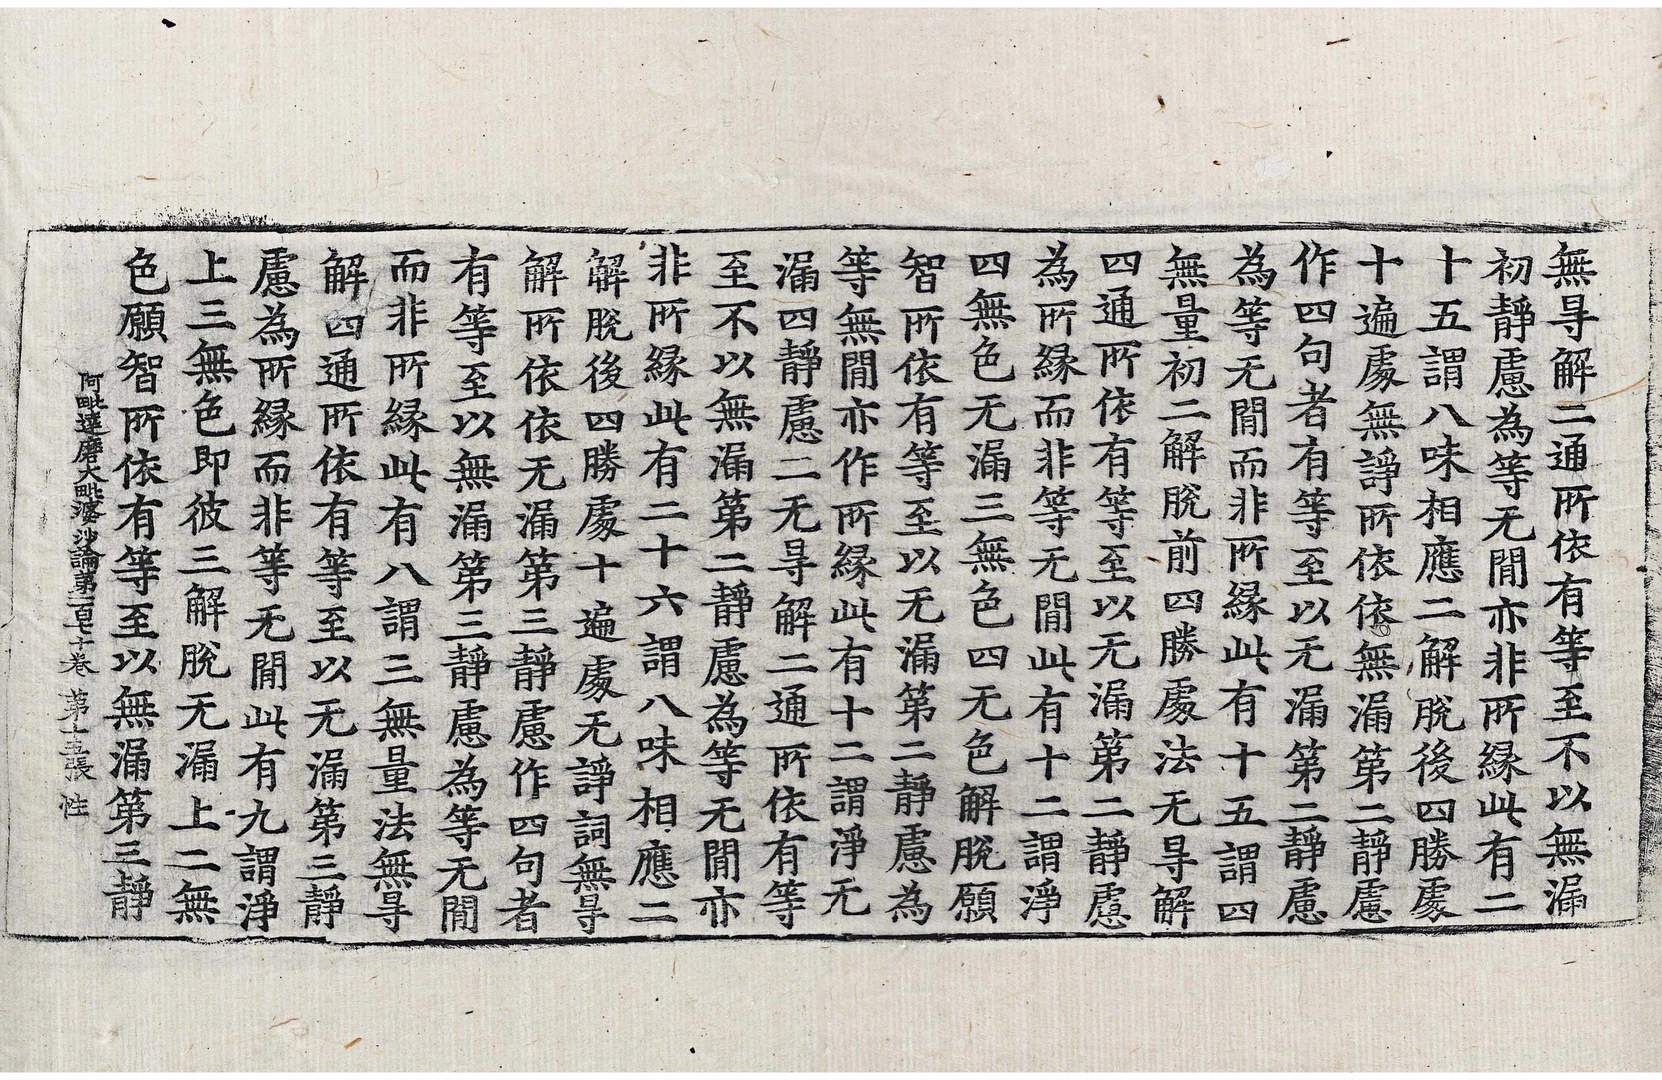 無㝵解二通所依有等至不以無漏
初靜慮為等无閒亦非所縁此有二
十五謂八味相應二解脫後四勝處
十遍處無諍所依依無漏第二靜慮
作四句者有等至以无漏第二靜慮
為等无閒而非所縁此有十五謂四
無量初二解脫前四勝處法无㝵解
四通所依有等至以无漏第二靜慮
為所縁而非等无閒此有十二謂淨
四無色无漏三無色四无色解脫願
智所依有等至以无漏第二靜慮為
等無閒亦作所縁此有十二謂淨无
漏四靜慮二无㝵解二通所依有等
至不以無漏第二靜慮為等无閒亦
非所縁此有二十六謂八味相應二
解脫後四勝處十遍處无諍詞無㝵
解所依依无漏第三靜慮作四句者
有等至以無漏第三靜慮為等无閒
而非所縁此有八謂三無量法無㝵
解四通所依有等至以无漏第三靜
慮為所縁而非等无閒此有九謂淨
上三無色即彼三解脫无漏上二無
色願智所依有等至以無漏第三靜
阿毗達磨大毗婆沙論第一百七十卷 第十五張 性